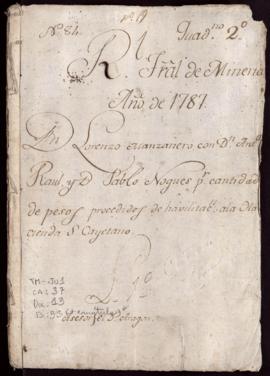 Nº 84. Quadno 2º
Rl. Trãl de Mineria
Año de 1787.
Dn Lorenzo Manzanero con Dn Anto
Raul y D. Pablo Nogues pr cantidad
de pesos procedidos de havilitaon ala Ha
cienda Sn Cayetano.
TM-JU1
CA: 37
Do: 13